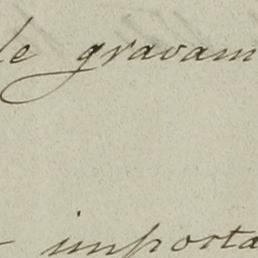 de gravam
importa